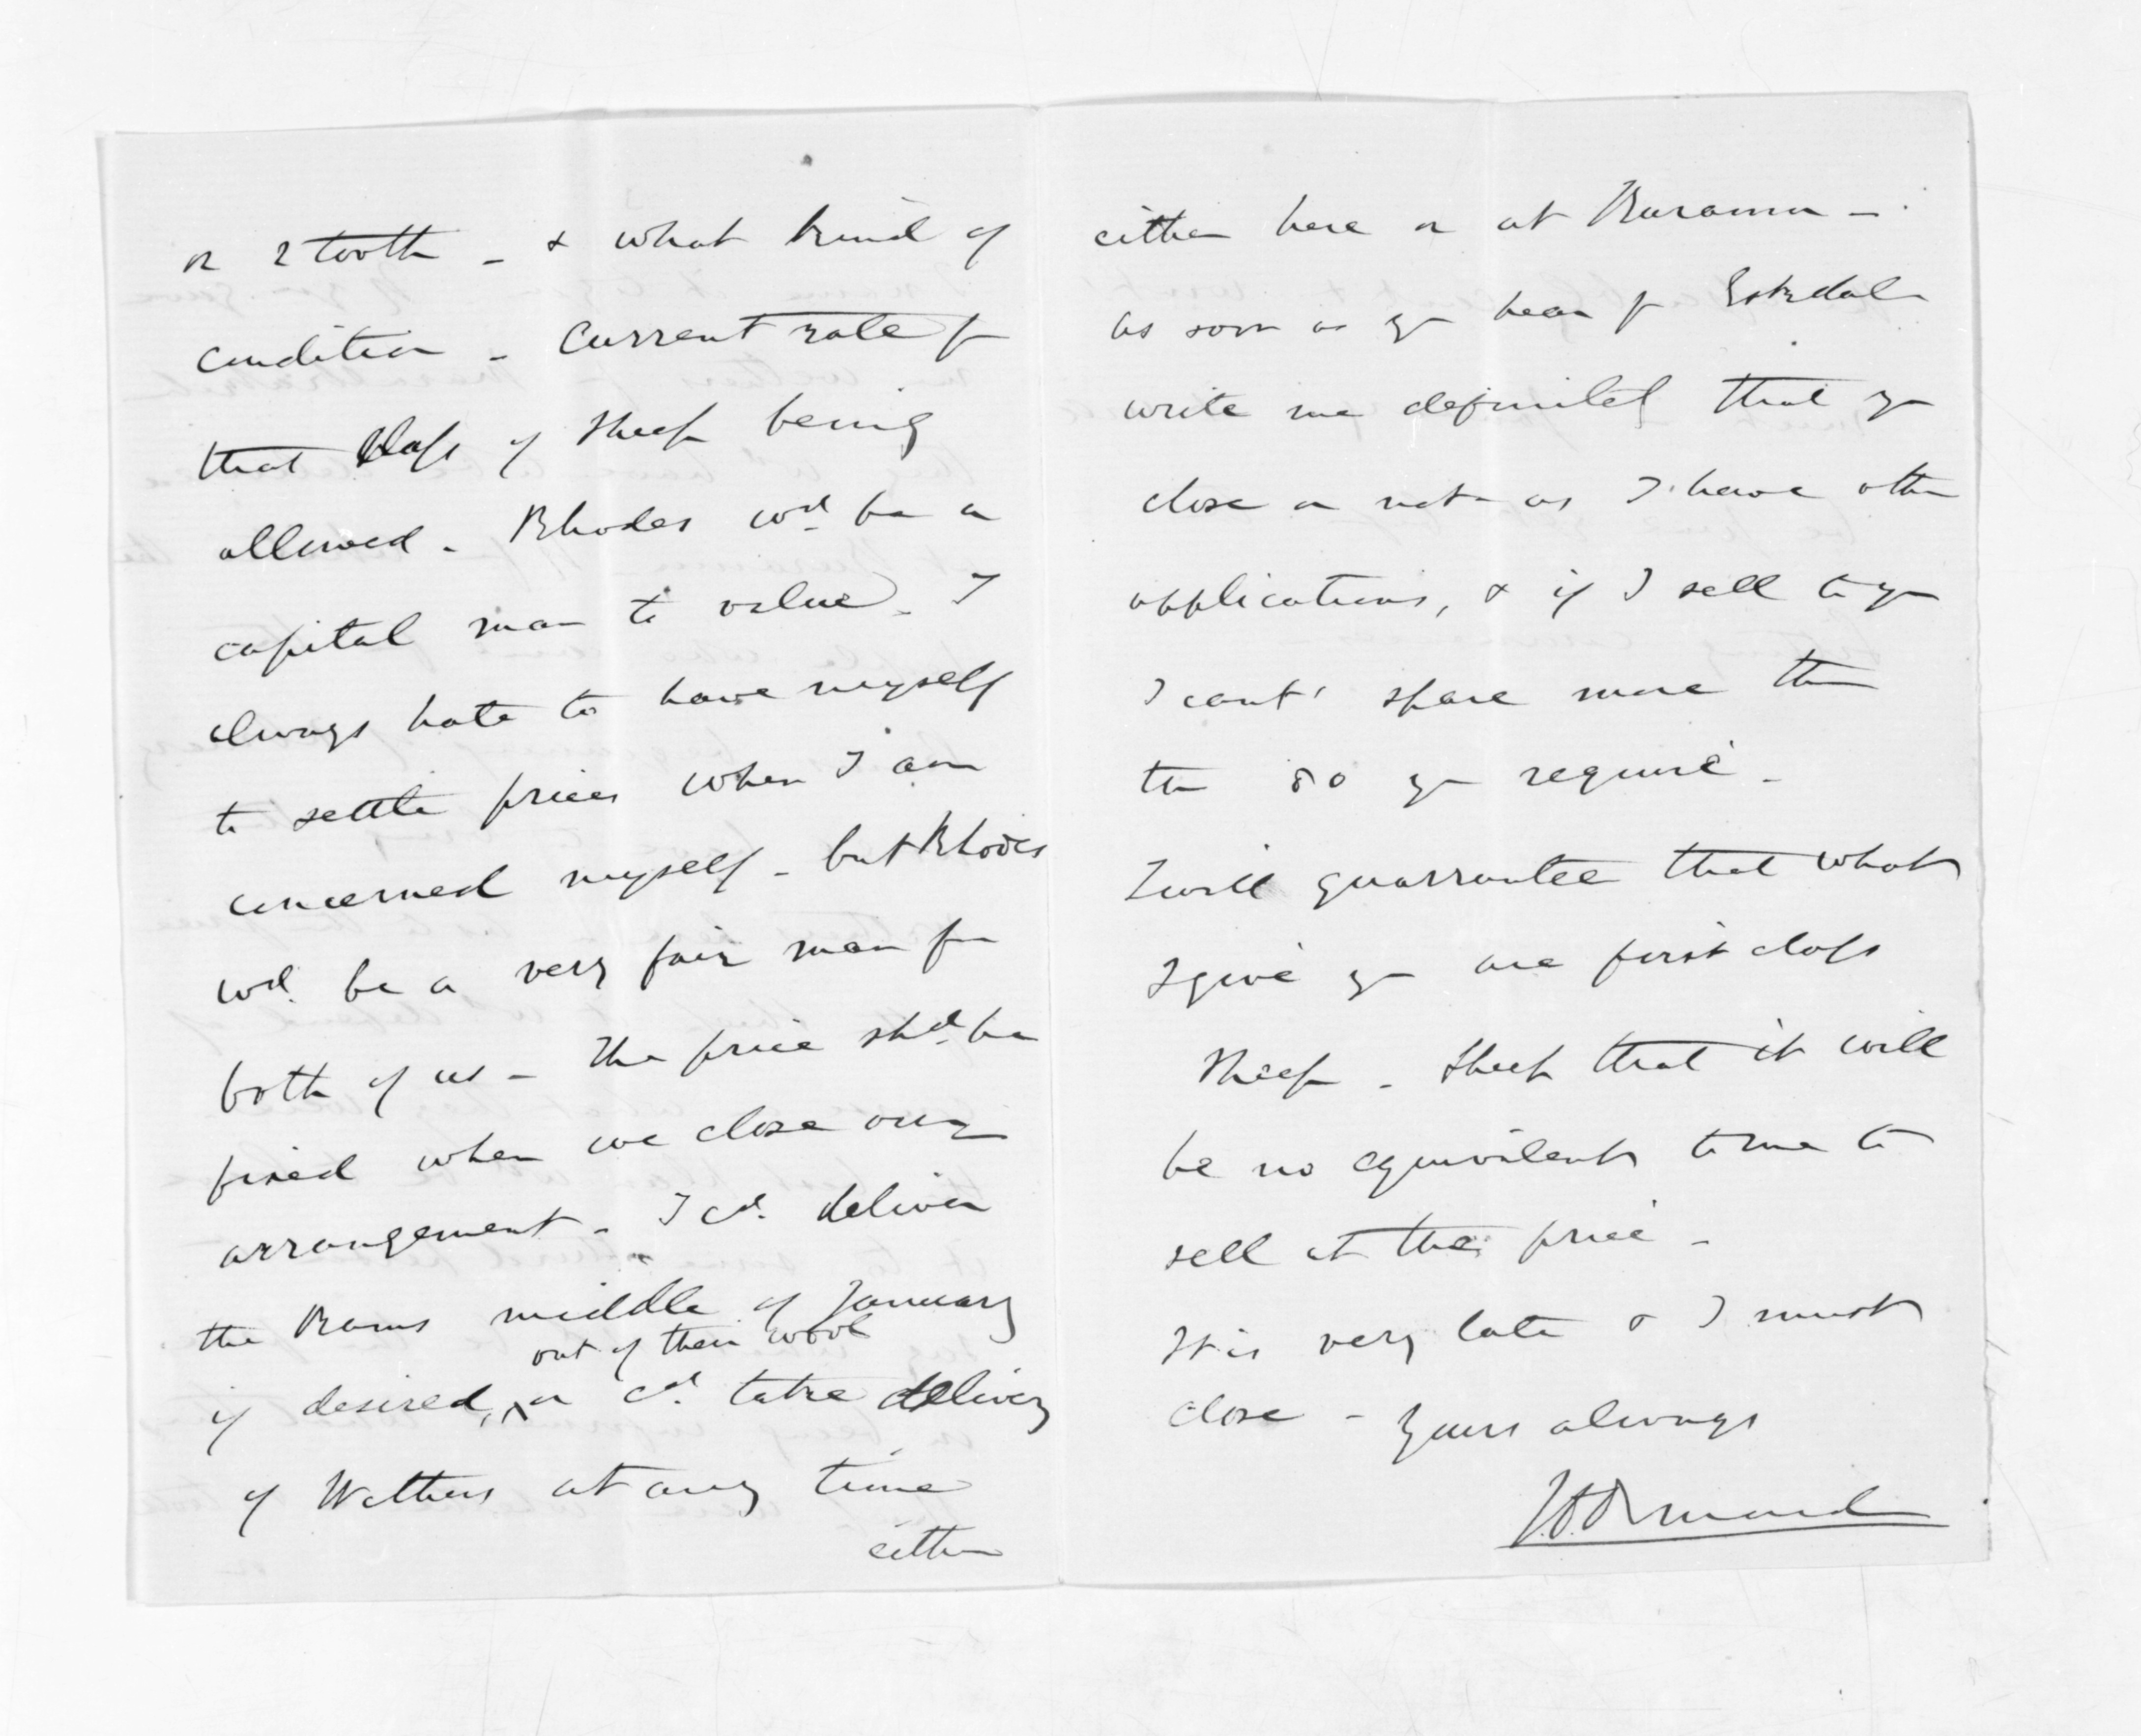 or 2 tooth - & what kind of
condition - Current rate for
that Class of Sheep being
allowed - Rhodes wd. be a
capital man to value - I
always hate to have myself
to settle prices when I am
concerned myself - but Rhodes
wd. be a very fair man for
both of us - The price shd. be
fixed when we close our
arrangement - I cd. deliver
the Rams middle of January
out of their wool
if desired, or cd. take delivery
of Wethers at any time
either
either here or at
as soon as you hear fr Eskdale
write me definitely that you
close or not as I have other
applications, & if I sell to you
I cant' spare more than
the 80 you require -
I will guarrantee that what
I give you are first class
Sheep - Sheep that it will
be no equivalent to me to
sell at the price -
It is very late & I must
close - Yours always
J.D. Ormond